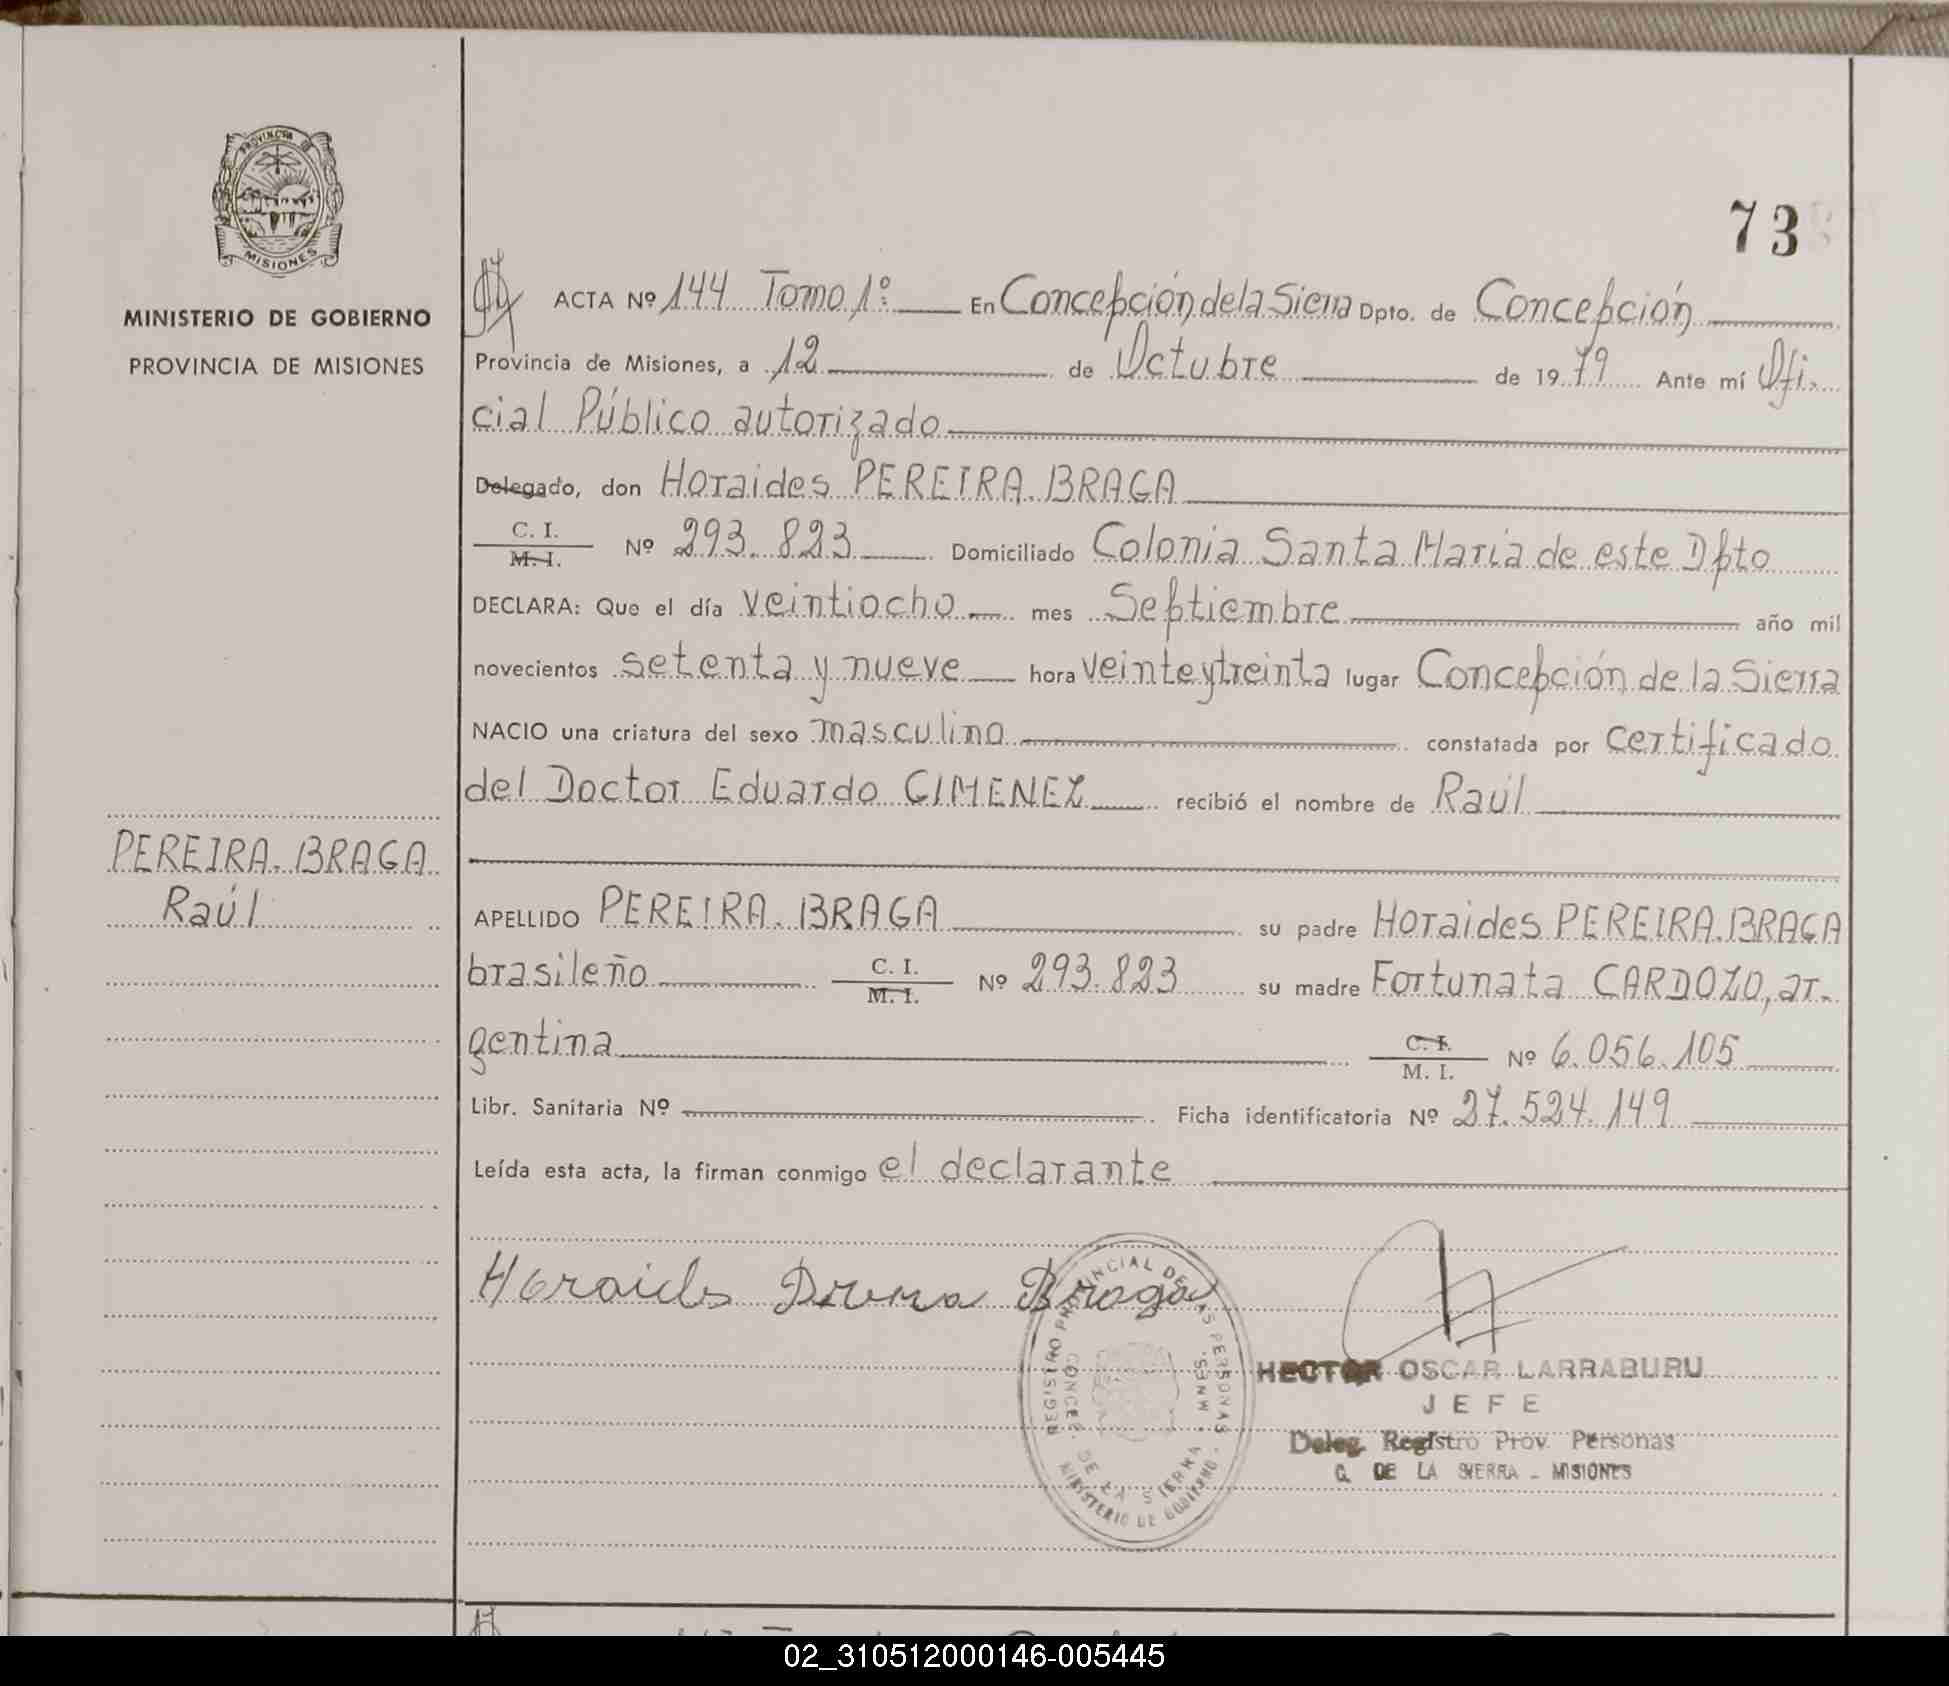 73
PROVINCIA
MISIONES
MINISTERIO DE GOBIERNO
PROVINCIA DE MISIONES
PEREIRA. BRAGA
Raúl
ACTA Nº 144 Tomo 1º: En Concepción de la Sierra Dpto. de Concepción
Provincia de Misiones, a 12 de Octubre de 1979 Ante mí Ofi-
cial Público autorizado
Delegado, don Horaides PEREIRA. BRAGA
C. I.
M. I. Nº 293.823 Domiciliado Colonia Santa Maria de este Dpto
DECLARA: Que el día veintiocho mes Septiembre año mil
novecientos setenta y nueve hora veinte y treinta lugar Concepción de la Sierra
NACIO una criatura del sexo masculino constatada por certificado
del Doctor Eduardo GIMENEZ recibió el nombre de Raúl
APELLIDO PEREIRA. BRAGA su padre Horaides PEREIRA. BRAGA
brasileño C. I.
M. I. Nº 293.823 su madre Fortunata CARDOZO, ar-
gentina C. I.
M. I. Nº 6.056.105
Libr. Sanitaria Nº Ficha identificatoria Nº 27.524.149
Leída esta acta, la firman conmigo el declarante
Horaides Braga
REGISTRO PROVINCIAL DE LAS PERSONAS
CONCEP. DE LA SIERRA - MNES.
MINISTERIO DE GOBIERNO
HECTOR OSCAR LARRABURU
JEFE
Deleg. Registro Prov. Personas
C. DE LA SIERRA - MISIONES
02_310512000146-005445